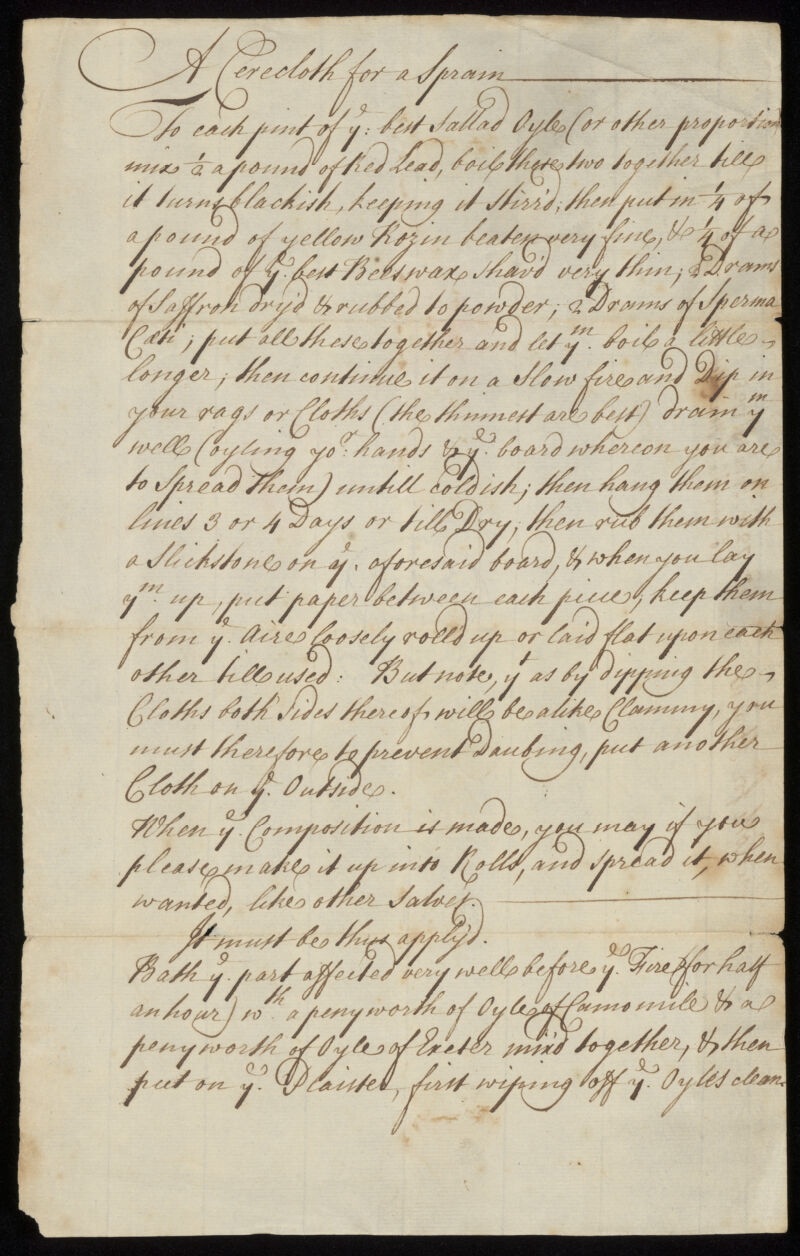 A Cerecloth for a Sprain
To each pint of yᵉ: best Sallad Oyle (or other proportion
mix ½ a pound of Red Lead, boil these two together till
it turns blackish, keeping it stirr'd; then put in ¼ of
a pound of yellow Rozin beaten very fine, & ¼ of a
pound of yᵉ. best Beeswax shav'd very thin; 2 Drams
of Saffron dry'd & rubbed to powder; 2 Drams of Sperma
Cæti; put all these together and let yᵐ. boil a little
longer; then continue it on a Slow fire and Dip in
your rags or Cloths (the thinnest are best) drain yᵐ
well (oyling yoʳ: hands & yᵉ. board whereon you are
to Spread them) untill coldish; then hang them on
lines 3 or 4 Days or till Dry; then rub them with
a Slickstone on yᵉ. aforesaid board, & when you lay
yᵐ. up, put paper between each piece, keep them
from yᵉ. Aire loosely rolld up or laid flat upon each
other till used: But note, yᵗ as by dipping the
Cloths both Sides thereof will be alike Clammy, you
must therefore to prevent Daubing, put another
Cloth on yᵉ. Outside.
When yᵉ. Composition is made, you may if you
please make it up into Rolls, and spread it, when
wanted, like other Salves.
It must be thus apply'd.
Bath yᵉ. part affected very well before yᵉ. Fire (for half
an hour) wᵗʰ. a penyworth of Oyle of Camomile & a
penyworth of Oyle of Exeter mix'd together, & then
put on yᵉ. Plaister, first wiping off yᵉ. Oyles clean.